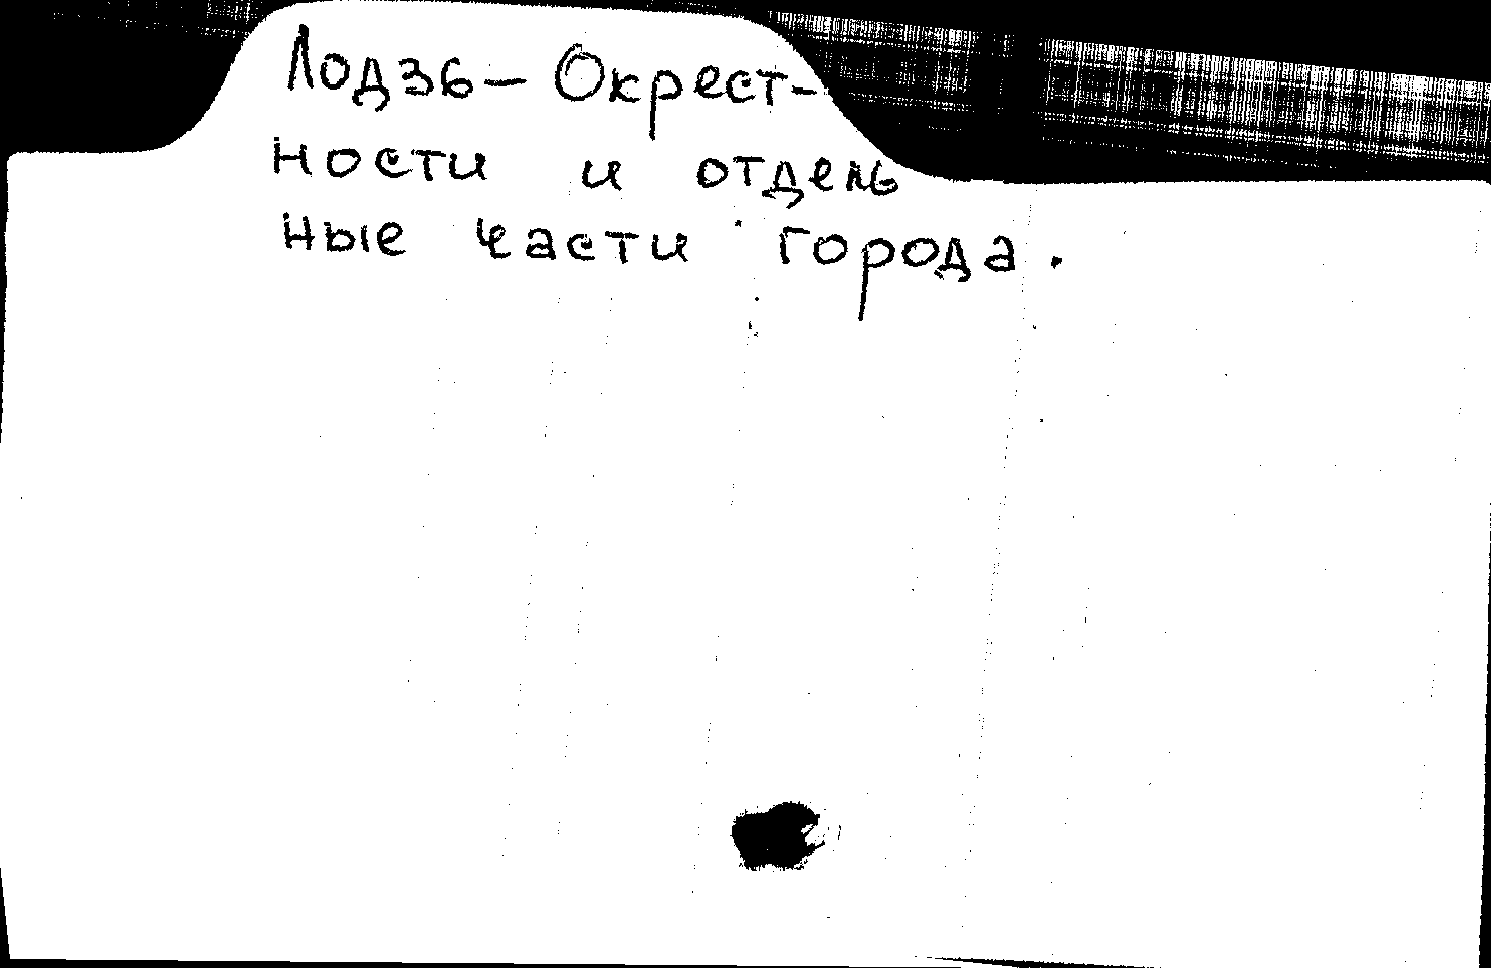 Лодзь — Окрест-
ности и отдель
ные части города.